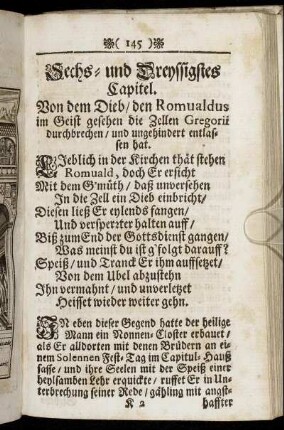 ( 145 )
Sechs- und Dreyssigstes
Capitel.
Von dem Dieb/ den Romualdus
im Geist gesehen die Zellen Gregorii
durchbrechen/ und ungehindert entlas-
sen hat.
Jeblich in der Kirchen thät stehen
Romuald, doch Er ersicht
Mit dem G'müth/ daß unversehen
In die Zell ein Dieb einbricht/
Diesen ließ Er eylends fangen/
Und versperzter halten auff/
Biß zum End der Gottsdienst gangen/
Was meinst du ist g'folgt darauff?
Speiß/ und Tranck Er ihm auffsetzet/
Von dem Ubel abzustehn
Ihn vermahnt/ und unverletzet
Heisset wieder weiter gehn.
IN eben dieser Gegend hatte der heilige
Mann ein Nonnen-Closter erbauet/
als Er alldorten mit denen Brüdern an ei-
nem Solennen Fest-Tag im Capitul-Hauß
sasse/ und ihre Seelen mit der Speiß einer
heylsamben Lehr erquickte/ ruffet Er in Un-
terbrechung seiner Rede/ gähling mit angst-
K 2 haffter